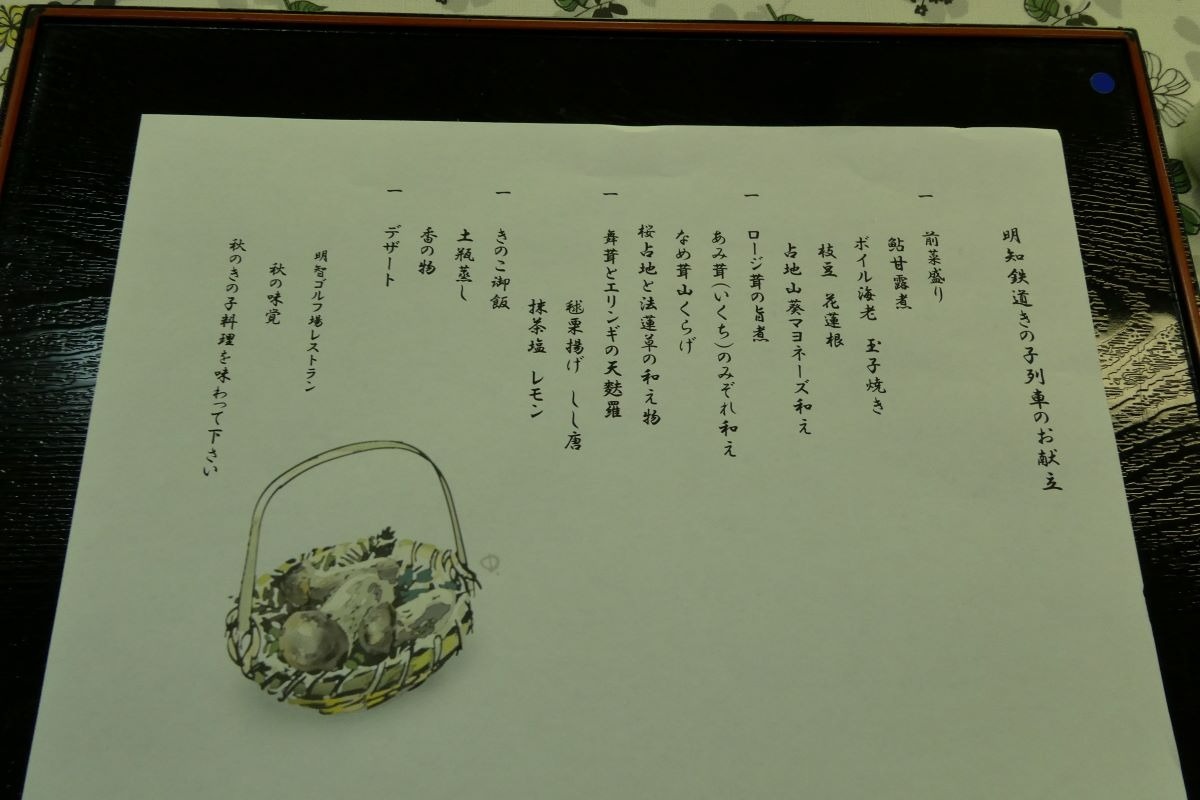 明知鉄道きの子列車のお献立
一 前菜盛り
鮎甘露煮
ボイル海老 玉子焼き
枝豆 花蓮根
占地山葵マヨネーズ和え
一 ロージ茸の旨煮
あみ茸(いくち)のみぞれ和え
なめ茸山くらげ
桜占地と法蓮草の和え物
一 舞茸とエリンギの天麩羅
毬栗揚げ しし唐
抹茶塩 レモン
一 きのこ御飯
土瓶蒸し
香の物
一 デザート
明智ゴルフ場レストラン
秋の味覚
秋のきの子料理を味わって下さい